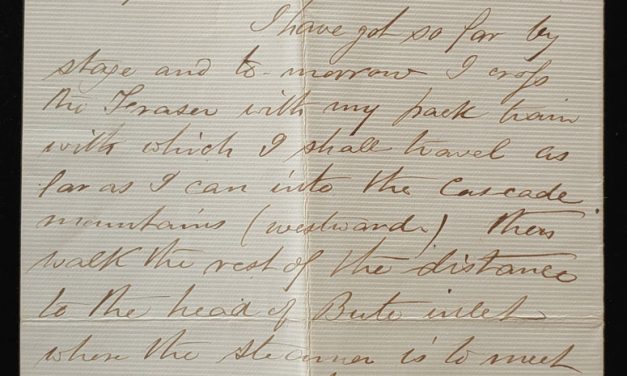 I have got so far by
stage and to-morrow I cross
the Fraser with my pack train
with which I shall travel as
far as I can into the Cascade
mountains (westward) then
walk the rest of the distance
to the head of Bute inlet
where the steamer is to meet